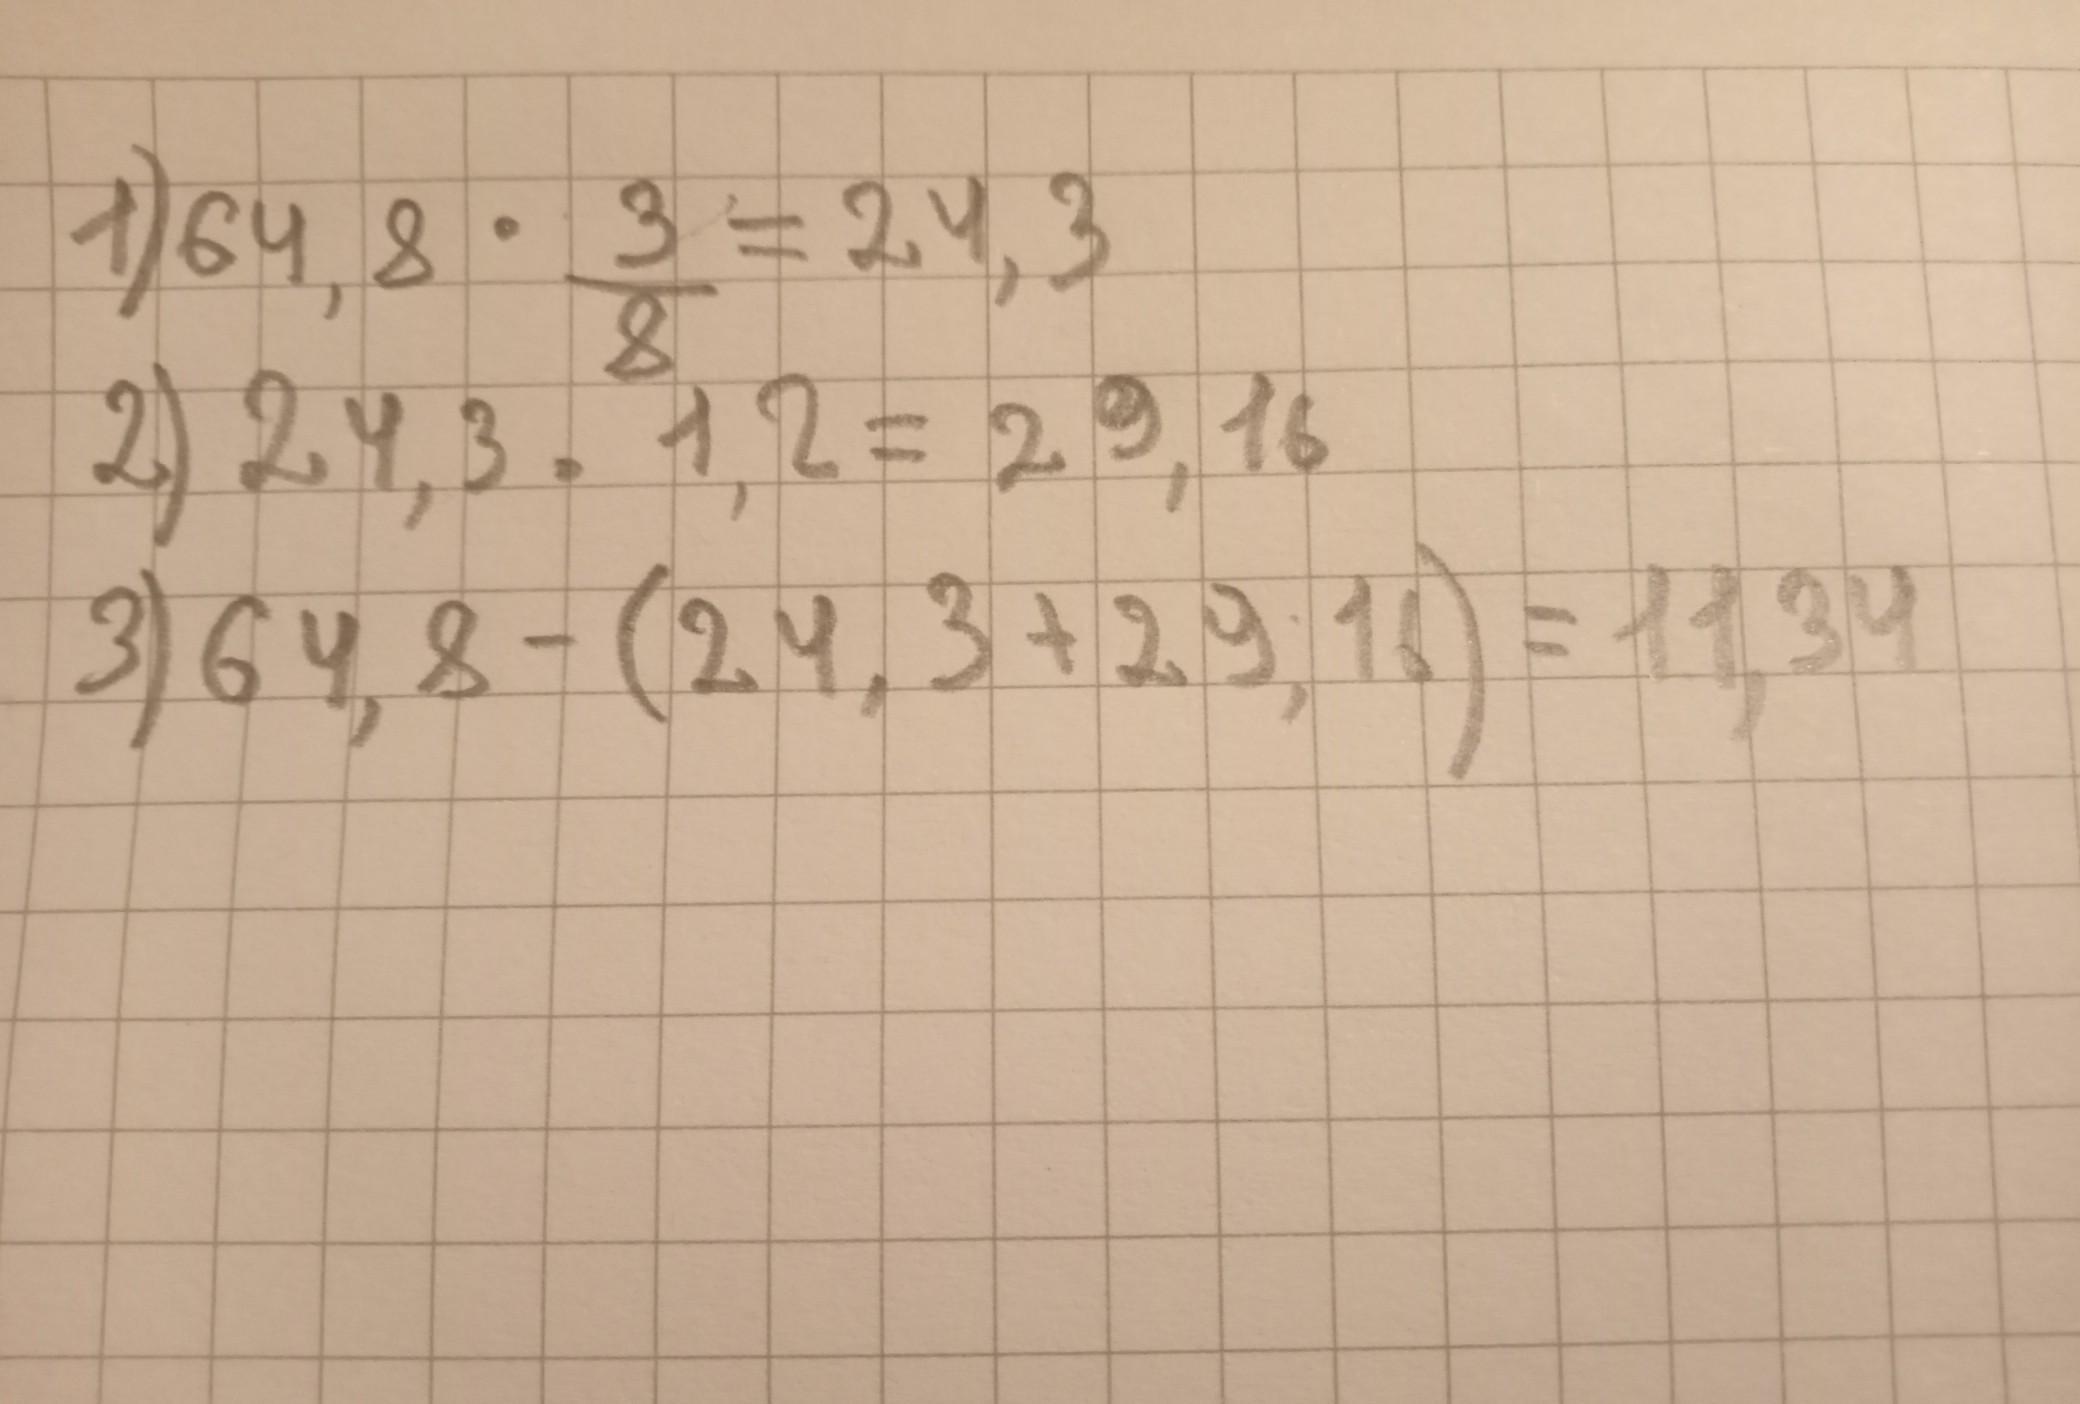 1) 64,8 · 3/8 = 24,3
2) 24,3 · 1,2 = 29,16
3) 64,8 - (24,3 + 29,16) = 11,34